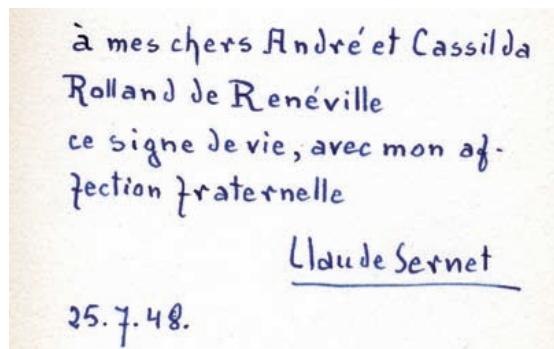 à mes chers André et Cassilda
Rolland de Renéville
ce signe de vie, avec mon af-
fection fraternelle
Claude Sernet
25.7.48.